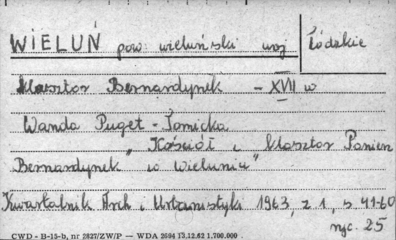 WIELUŃ pow. wieluński woj Łódzkie
klasztor Bernardynek - XVII w
Wanda Puget - Tomicka
"Kościół i klasztor Panien
Bernardynek w Wieluniu"
Kwartalnik Arch i Urbanistyki 1963, z 1, s 41-60
ryc. 25
CWD - B-15-b, nr 2827/ZW/P — WDA 2694 13.12.62 1.700.000